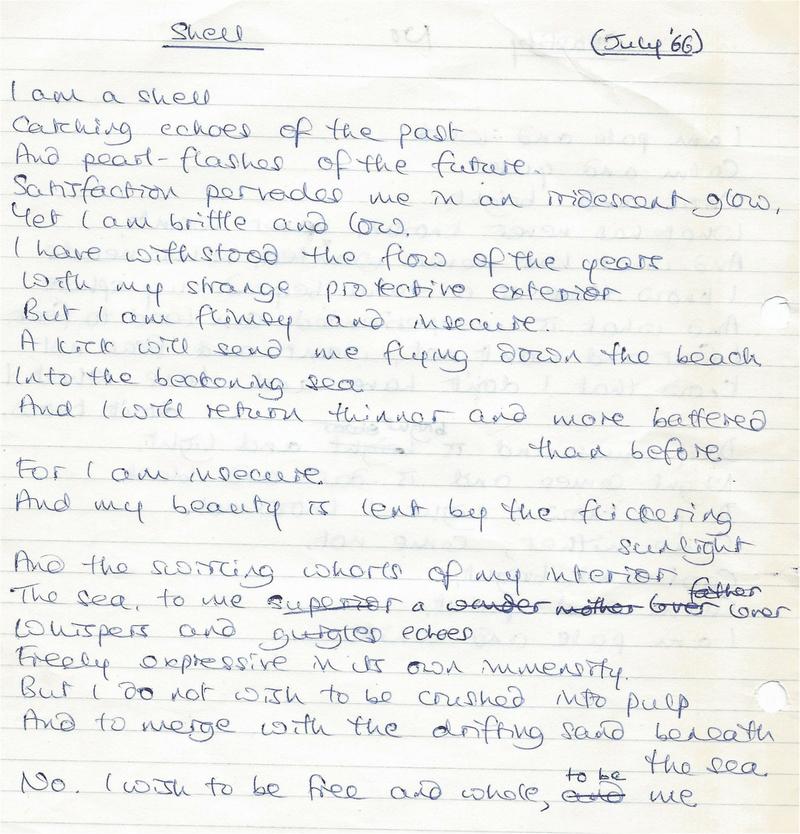 Shell (July '66)
I am a shell
Catching echoes of the past
And pearl-flashes of the future.
Satisfaction pervades me in an iridescent glow,
Yet I am brittle and low.
I have withstood the flow of the years
With my strange protective exterior
But I am flimsy and insecure
A kick will send me flying down the beach
Into the beckoning sea
And I will return thinner and more battered
than before
For I am insecure.
And my beauty is lent by the flickering
sunlight
And the swirling whorls of my interior.
father
The sea, to me superior a wonder mother lover lover
Whispers and gurgles echoes
Freely expressive in its own immensity.
But I do not wish to be crushed into pulp
And to merge with the drifting sand beneath
the sea.
to be
No. I wish to be free and whole, and me